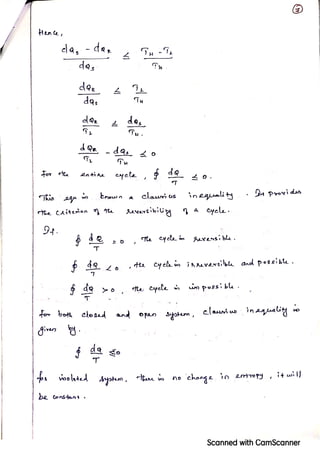 ③
Hence,
dQs - dQR ≤ TH - TL
dQs TH
dQR ≤ TL
dQs TH
dQR ≤ dQs
TL TH
dQR - dQs ≤ 0
TL TH
for the entire cycle, ∮ dQ/T ≤ 0.
This eqn is known a clausius inequality. It provides
the criterion of the reversibility of a cycle.
If.
∮ dQ/T = 0, The cycle is reversible.
∮ dQ/T < 0, the cycle is irreversible and possible.
∮ dQ/T > 0, the cycle is impossible.
for both closed and open system, clausius inequality is
given by.
∮ dQ/T ≤ 0
system, there is no change in entropy, it will
be constant.
Scanned with CamScanner